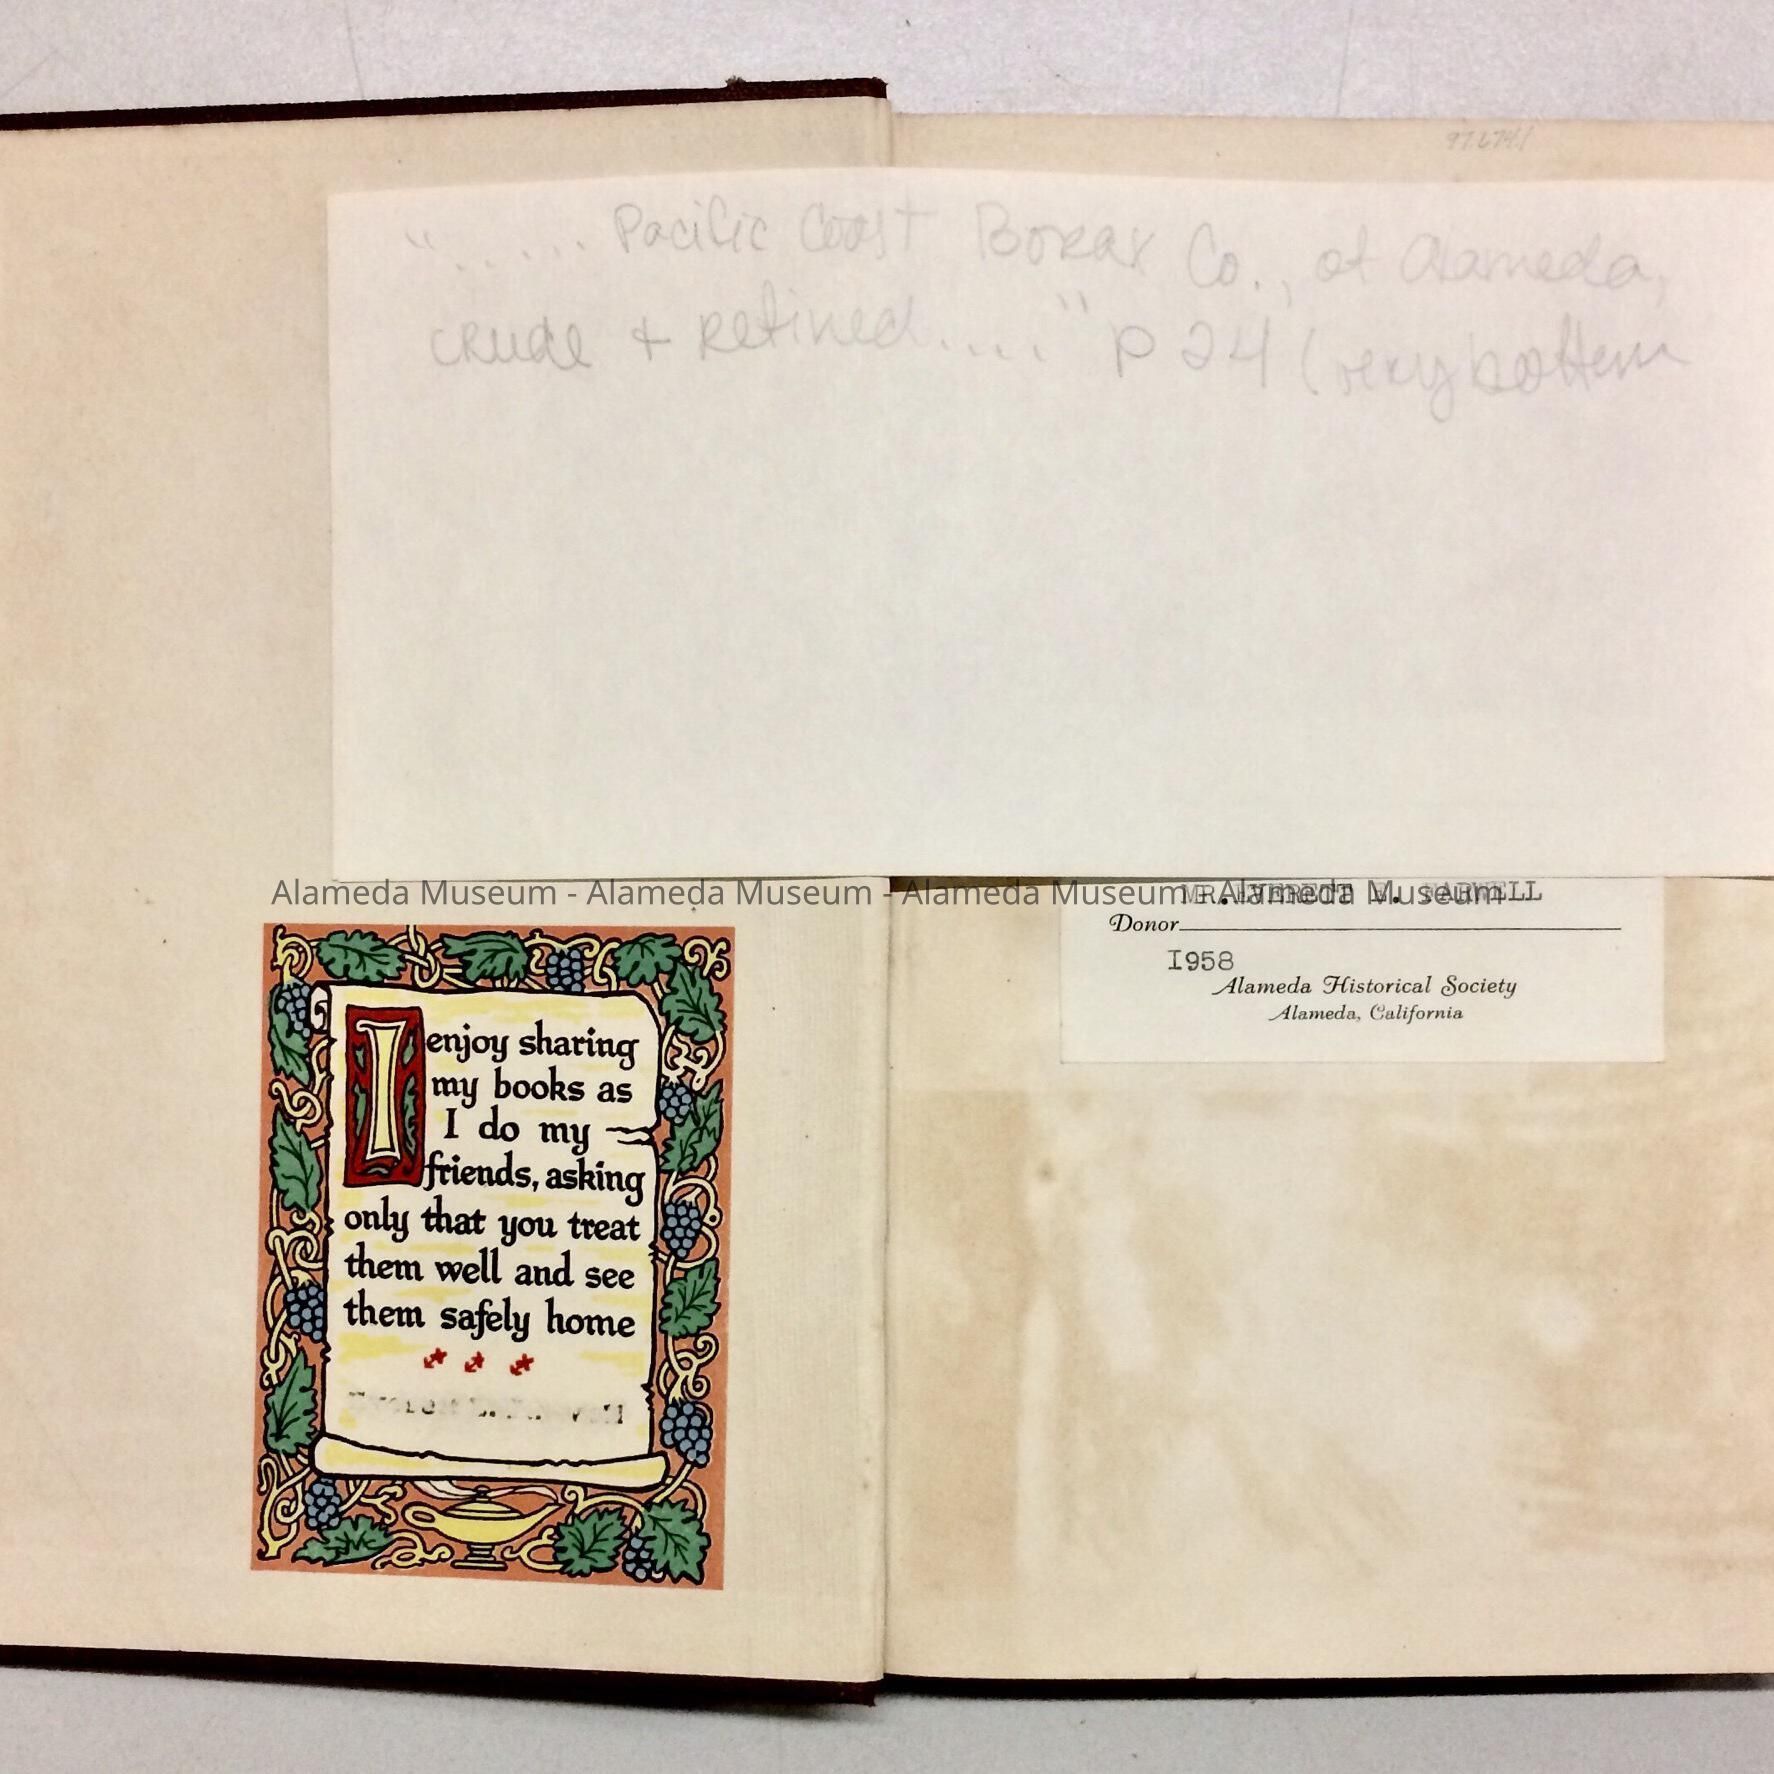 97.674.1
"..... Pacific Coast Borax Co., of Alameda,
crude & refined...." p 24 (very bottom
Alameda Museum - Alameda Museum - Alameda Museum - Alameda Museum
MR. EVERETT E. FARWELL
Donor
I958
Alameda Historical Society
Alameda, California
I enjoy sharing
my books as
I do my
friends, asking
only that you treat
them well and see
them safely home